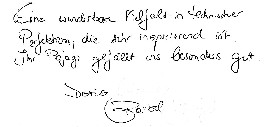 Eine wunderbare Vielfalt in technischer
Perfektion, die sehr inspirierend ist.
Ihr Projekt gefällt uns besonders gut.
Doris